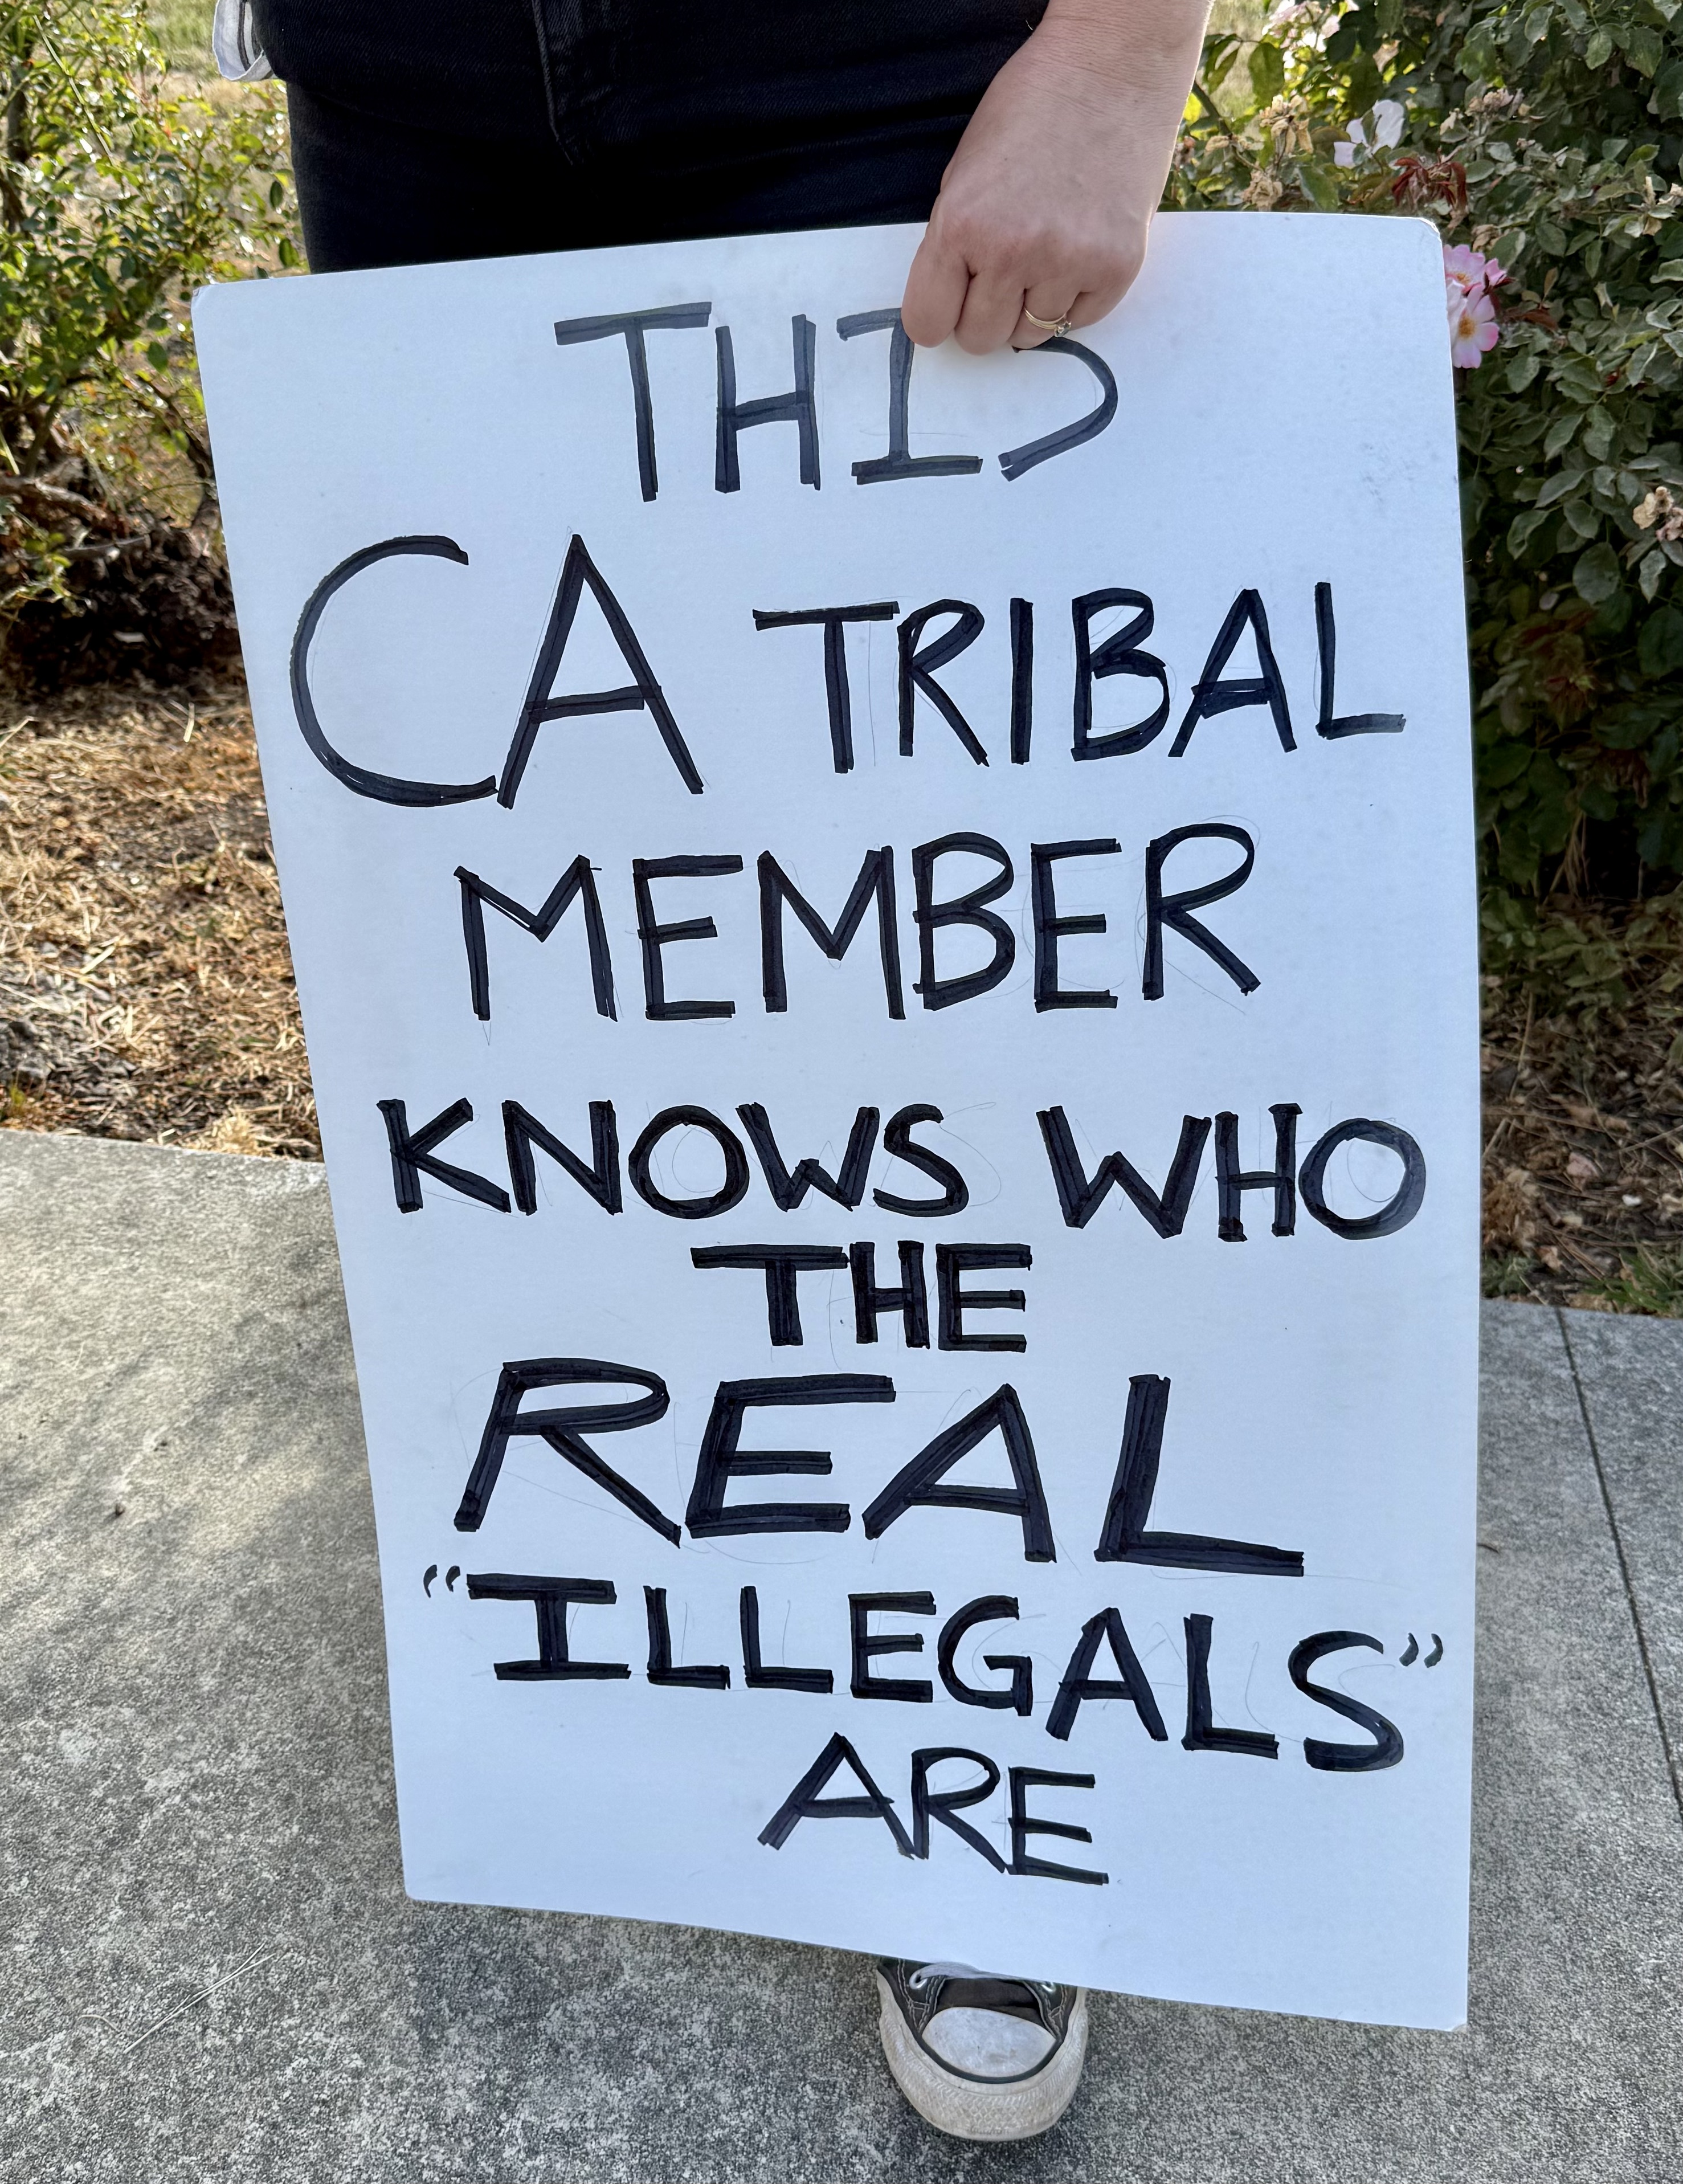 THIS
CA TRIBAL
MEMBER
KNOWS WHO
THE
REAL
“ILLEGALS”
ARE